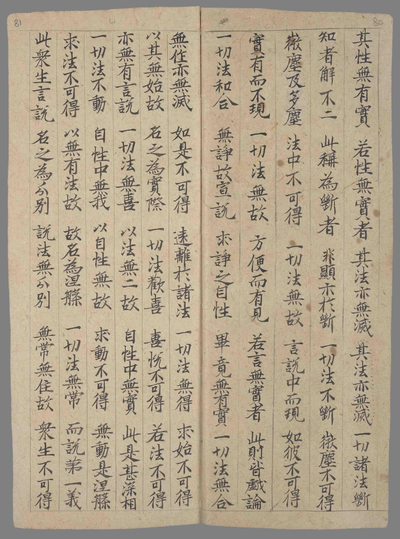 80
其性無有實 若性無實者 其法亦無滅 其法亦無滅 一切諸法斷
知者解不二 此稱為斷者 非顯示於斷 一切法不斷 微塵不可得
微塵及多塵 法中不可得 一切法無故 言說中而現 如彼不可得
實有而不現 一切法無故 方便而有見 若言無實者 此則皆戲論
一切法和合 無諍故宣說 求諍之自性 畢竟無有實 一切法無合
81
無住亦無滅 如是不可得 遠離於諸法 一切法無得 求始不可得
以其無始故 名之為實際 一切法歡喜 喜悅不可得 若法不可得
亦無有言說 一切法無喜 以法無二故 自性中無實 此是甚深相
一切法不動 自性中無我 以自性無故 求動不可得 無動是涅槃
求法不可得 以無有法故 故名為涅槃 一切法無常 而說第一義
此眾生言說 名之為分別 說法無分別 無常無住故 眾生不可得